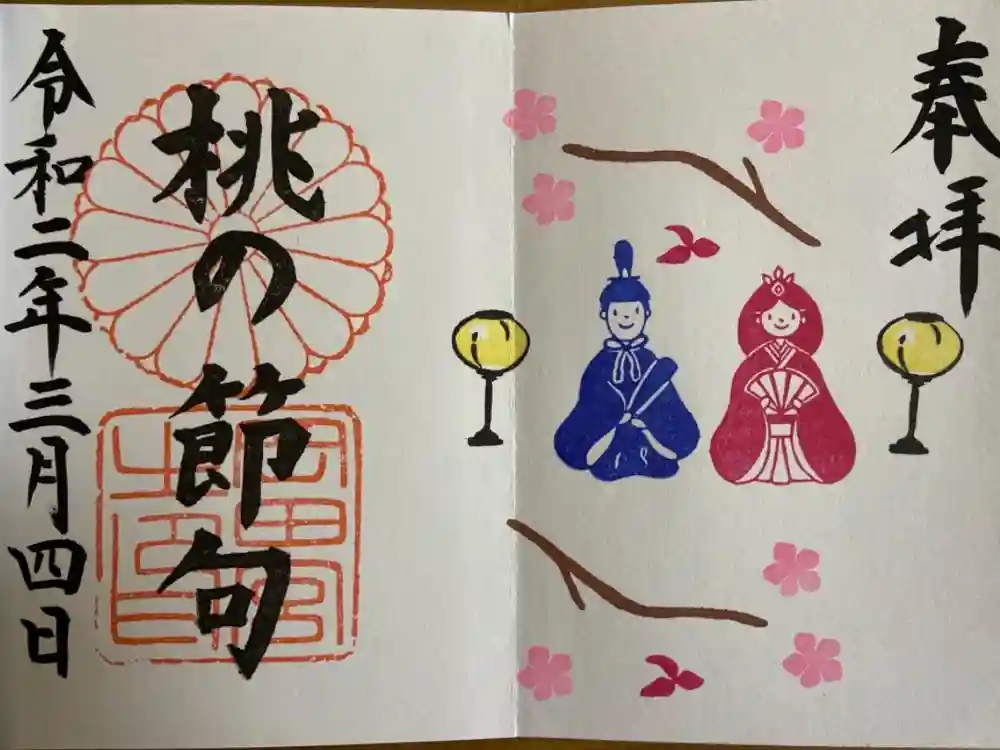 奉拝
桃の節句
令和二年三月四日